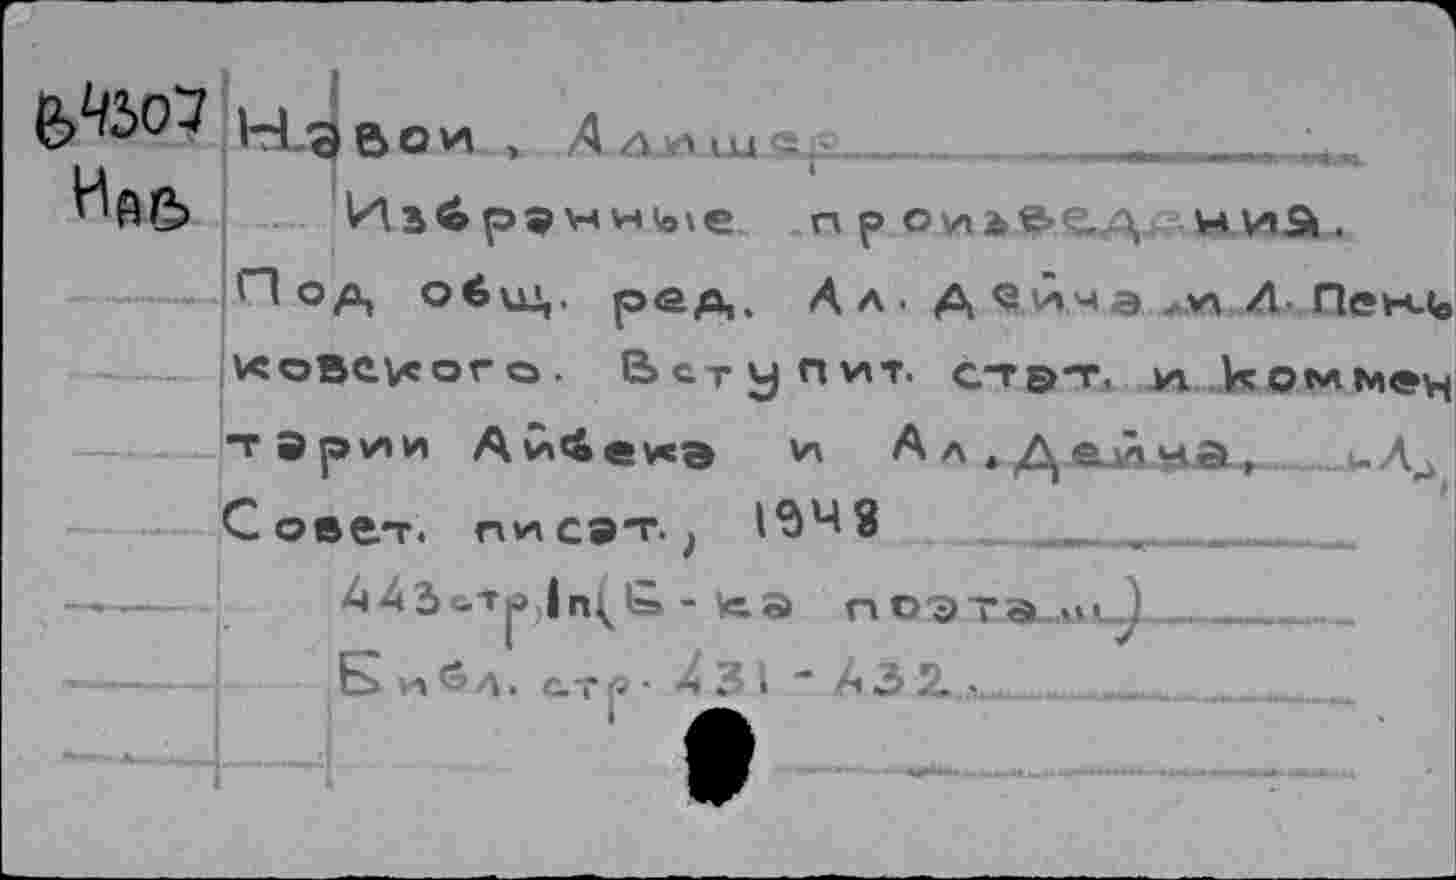 В4307 Навои, Алишер
Нав Избранные произведений.
Под общ. ред. Ал. Дейча и Л. Пень
ковского. Вступит. стат. и коммен
тарии Айбека и Ал. Дейча, Л.,
Совет. писат., 1948
443 стр. (Б-ка поэта)
Библ. стр. 431-432.